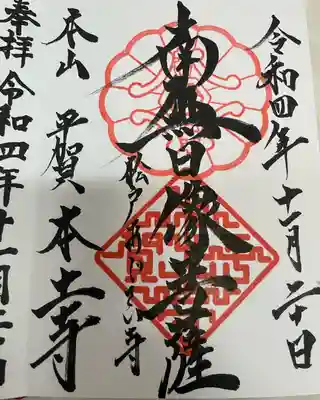 令和四年十一月二十日
南無日像菩薩
松戸市
本山 平賀 本土寺
奉拝 令和四年十一月二十日